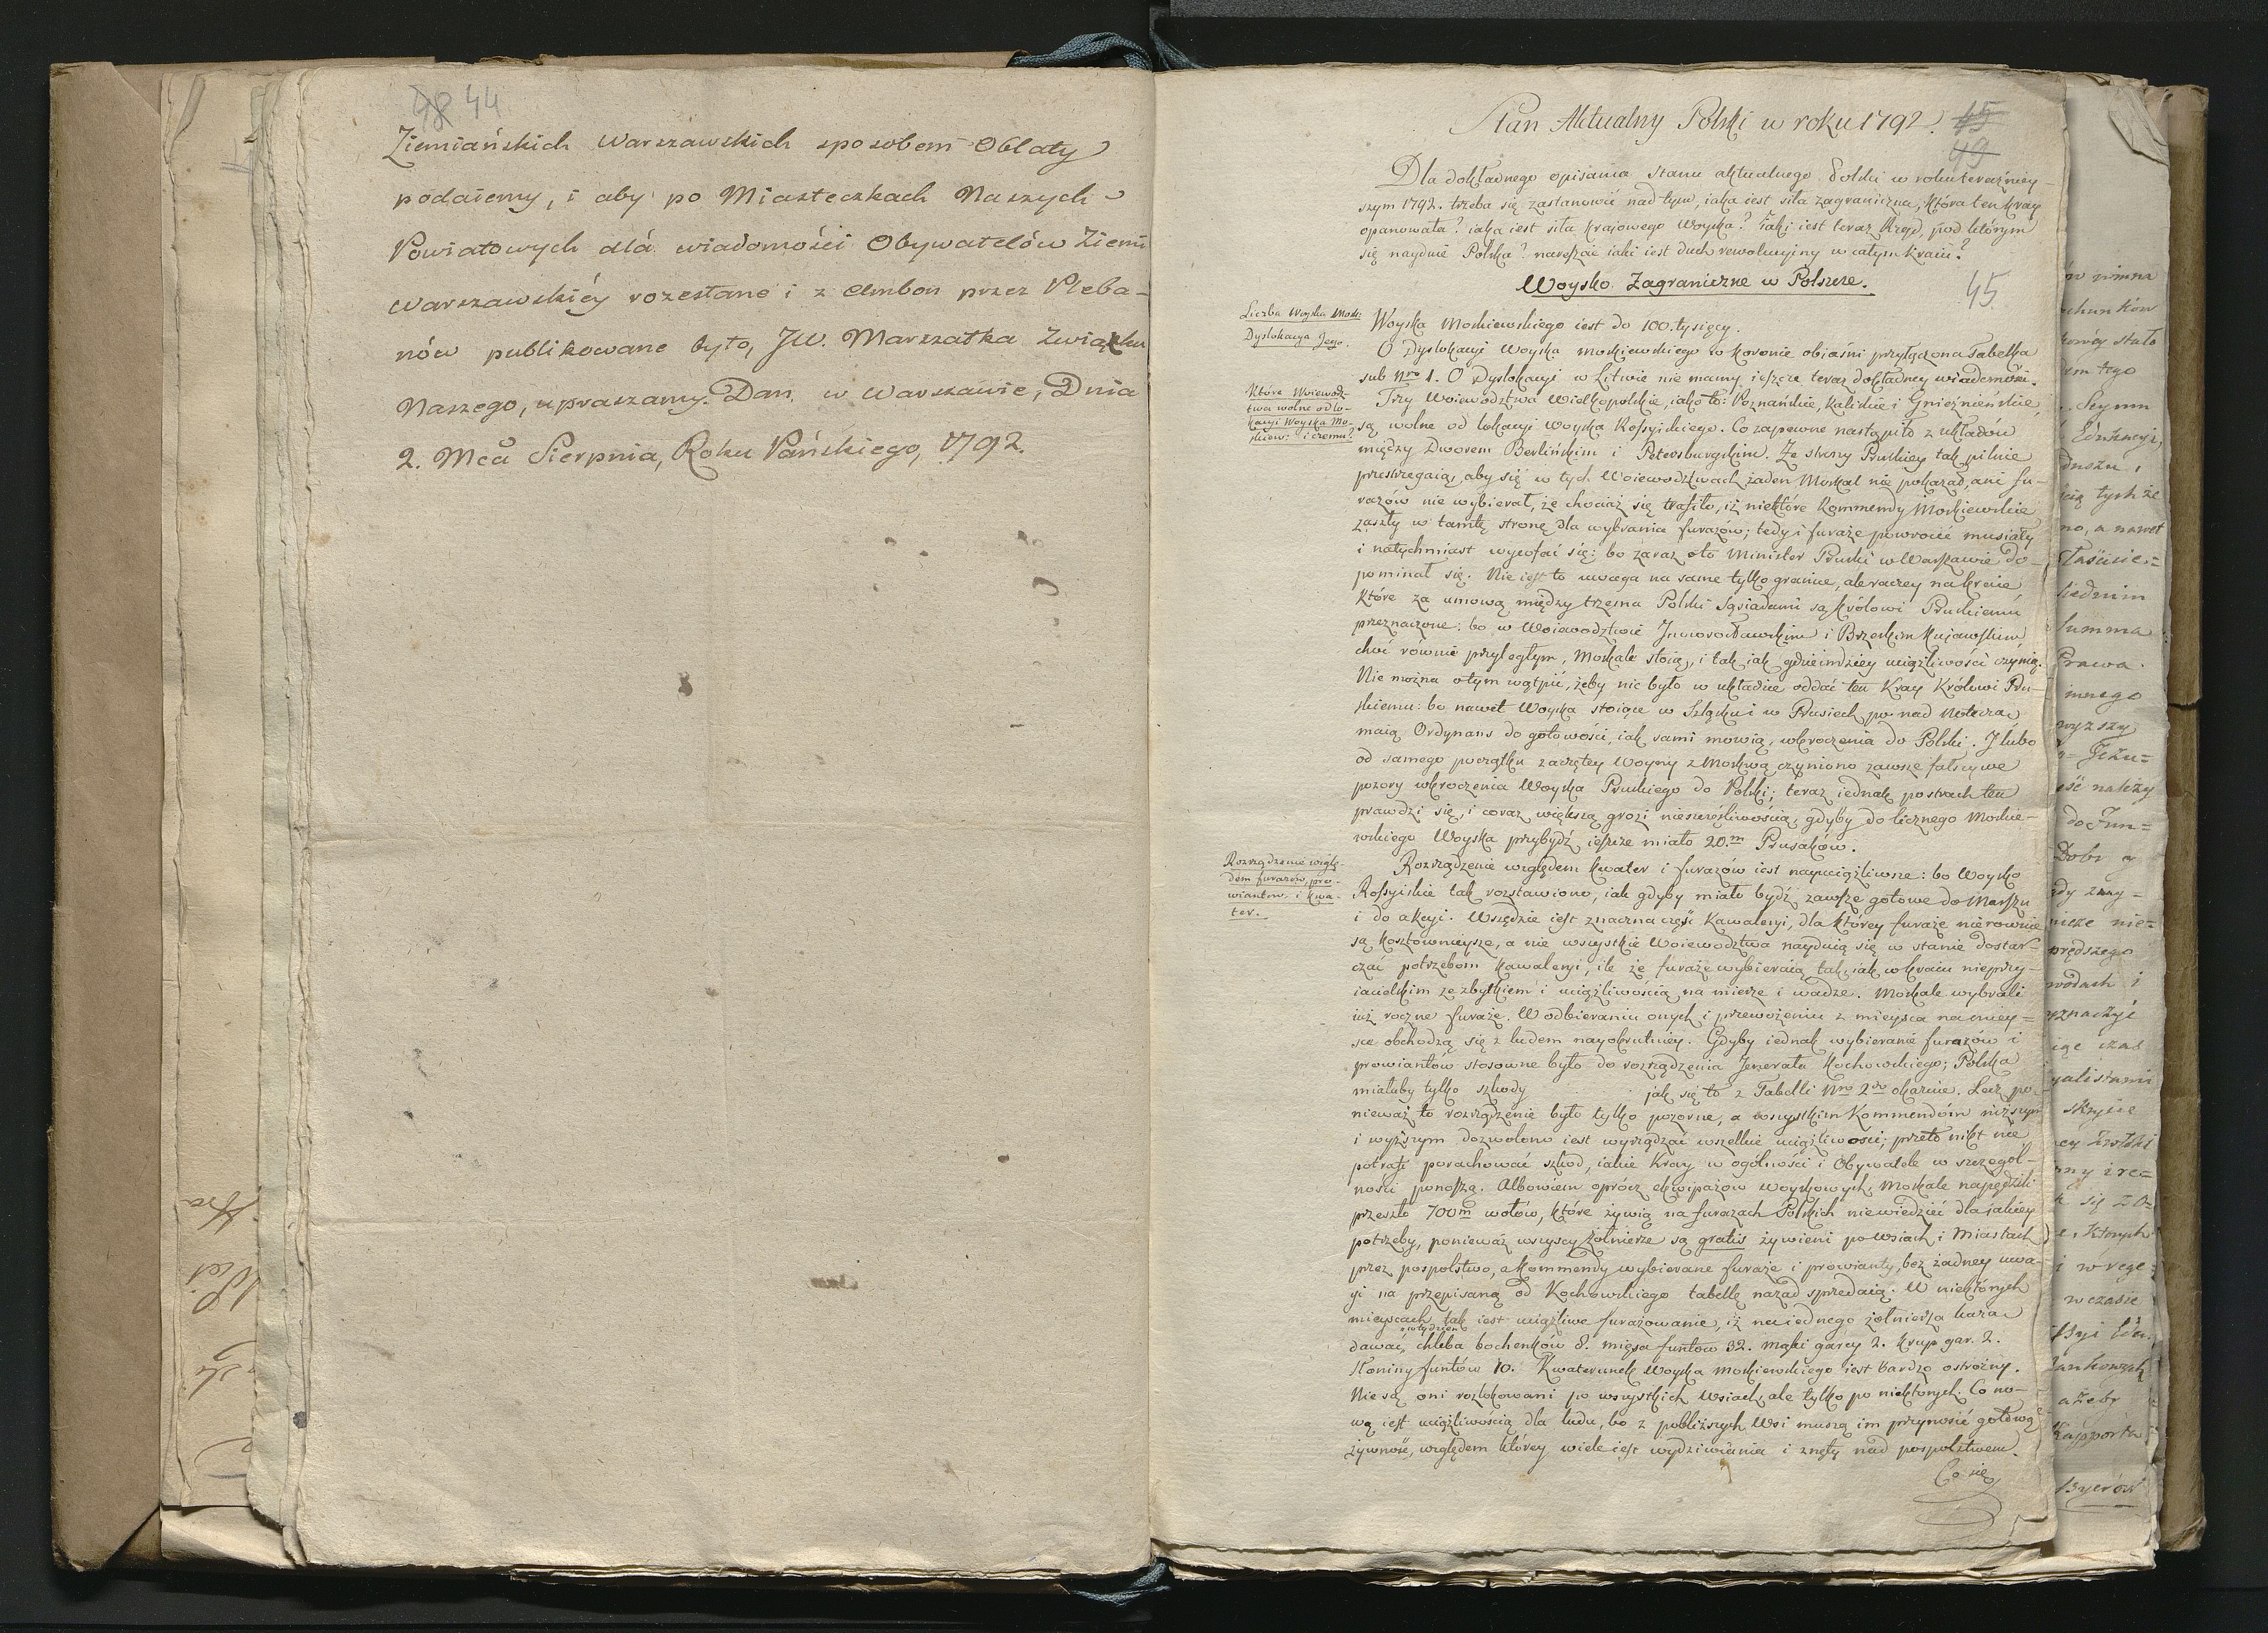 48 44
Ziemiańskich Warszawskich sposobem Oblaty
podaiemy, i aby po Miasteczkach Naszych
Powiatowych dla wiadomości Obywatelów Ziemi
Warszawskiéy rozesłane i z Ambon przez Pleba-
nów publikowane było, JW. Marszałka Związku
Naszego, upraszamy. Dan. w Warszawie, Dnia
2. Mca Sierpnia, Roku Pańskiego, 1792.
Stan Aktualny Polski w roku 1792.
45
49
Dla dokładnego opisania stanu aktualnego Polski w roku teraźniey-
szym 1792. trzeba się zastanowić nad tym, iaka iest siła zagraniczna, która ten kray
opanowała? iaka iest siła krajowego Woyska? Jaki iest teraz Rząd, pod którym
się nayduie Polska? nareszcie iaki iest duch rewolucyiny w całym kraiu?
45
Woysko Zagraniczne w Polszcze.
Liczba Woyska Mosk:
Dyslokacya Jego.
Woyska Moskiewskiego iest do 100. tysięcy.
O Dyslokacyi Woyska Moskiewskiego w koronie obiaśni przyłączona Tabelka
sub Nro 1. O Dyslokacyi w Litwie nie mamy ieszcze teraz dokładney wiadomości.
Które Woiewódz-
twa wolne od lo-
kacyi Woyska Mo-
skiews: i czemu?
Trzy Woiewództwa Wielkopolskie, iako to: Poznańskie, Kaliskie i Gnieźnieńskie,
są wolne od lokacyi woyska Rossyiskiego. Co zapewne nastąpiło z układów
między Dworem Berlińskim i Petersburgskim. Ze strony Pruskiey tak pilnie
przestrzegaią, aby się w tych Woiewodztwach żaden Moskal nie pokazał, ani fu-
rażów nie wybierał, że chociaż się trafiło, iż niektóre Kommendy Moskiewskie
zaszły w tamtę stronę dla wybrania furażów; tedy i furaże powrócić musiały
i natychmiast wycofać się: bo zaraz o to Minister Pruski w Warszawie do-
pominał się. Nie iest to uwaga na same tylko granice, ale raczey na kraie
które za umową między trzema Polski Sąsiadami są Królowi Pruskiemu
przeznaczone: bo w Woiewodztwie Inowrocławskim i Brzeskim Kujawskim
choć równie przyległym, Moskale stoią, i tak iak gdzieindziey uciążliwości czynią.
Nie można o tym wątpić, żeby nie było w układzie oddać ten Kray Królowi Pru-
skiemu: bo nawet Woyska stoiące w Szląsku i w Prusiech po nad Notecią
maią Ordynans do gotowości, iak sami mowią, wkroczenia do Polski. J lubo
od samego początku zaczętey Woyny z Moskwą czyniono zawsze fałszywe
pozory wkroczenia Woyska Pruskiego do Polski; teraz iednak postrach ten
prawdzi się, i coraz większą grozi nieszczęśliwością, gdyby do licznego Moskie-
wskiego Woyska przybydź ieszcze miało 20.m Prusaków.
Rozrządzenie wzglę-
dem furażów, pro-
wiantów i kwa-
ter.
Rozrządzenie względem kwater i furażów iest nayuciążliwsze: bo Woysko
Rossyiskie tak rozstawiono, iak gdyby miało bydź zawsze gotowe do Marszu
i do akcyi. Wszędzie iest znaczna część Kawaleryi, dla którey furaże nierownie
są kosztownieysze, a nie wszystkie Woiewodztwa nayduią się w stanie dostar-
czać potrzebom Kawaleryi, ile że furaże wybieraią tak, iak w kraiu nieprzy-
iacielskim ze zbytkiem i uciążliwością na mierze i wadze. Moskale wybrali
iuż roczne furaże. W odbieraniu onych i przewożeniu z mieysca na miey-
sce obchodzą się z ludem nayokrutniey. Gdyby iednak wybieranie furażów i
prowiantów stosowne było do rozrządzenia Jenerała Kochowskiego; Polska
miałaby tylko szkody jak się to z Tabelli Nro 2do okazuie. Lecz po-
nieważ to rozrządzenie było tylko pozorne, a wszystkim Kommendom niższym
i wyższym dozwolono iest wyrządzać wszelkie uciążliwości; przeto nikt nie
potrafi porachować szkod, iakie Kray w ogólności i Obywatele w szczegól-
ności ponoszą. Albowiem oprócz ekwipażow woyskowych, Moskale napędzili
przeszło 700m wołów, które żywią na furażach Polskich niewiedzieć dla iakiey
potrzeby, ponieważ wszyscy żołnierze są gratis żywieni po Wsiach i Miastach
przez pospolstwo, a kommendy wybierane furaże i prowianty, bez żadney uwa-
gi na przepisaną od Kochowskiego tabellę nazad sprzedaią. W niektórych
mieyscach tak iest uciążliwe furażowanie, iż na iednego żołnierza każą
na tydzień
dawać, chleba bochenków 8. mięsa funtow 32. mąki garcy 2. krup gar. 2.
słoniny funtów 10. Kwaterunek Woyska Moskiewskiego iest bardzo ostrożny.
Nie są oni rozlokowani po wszystkich Wsiach, ale tylko po niektórych. Co no-
wą iest uciążliwością dla ludu, bo z pobliższych Wsi muszą im przynosić gotową
żywność, względem którey wiele iest wydziwiania i znęty nad pospolstwem.
Co się